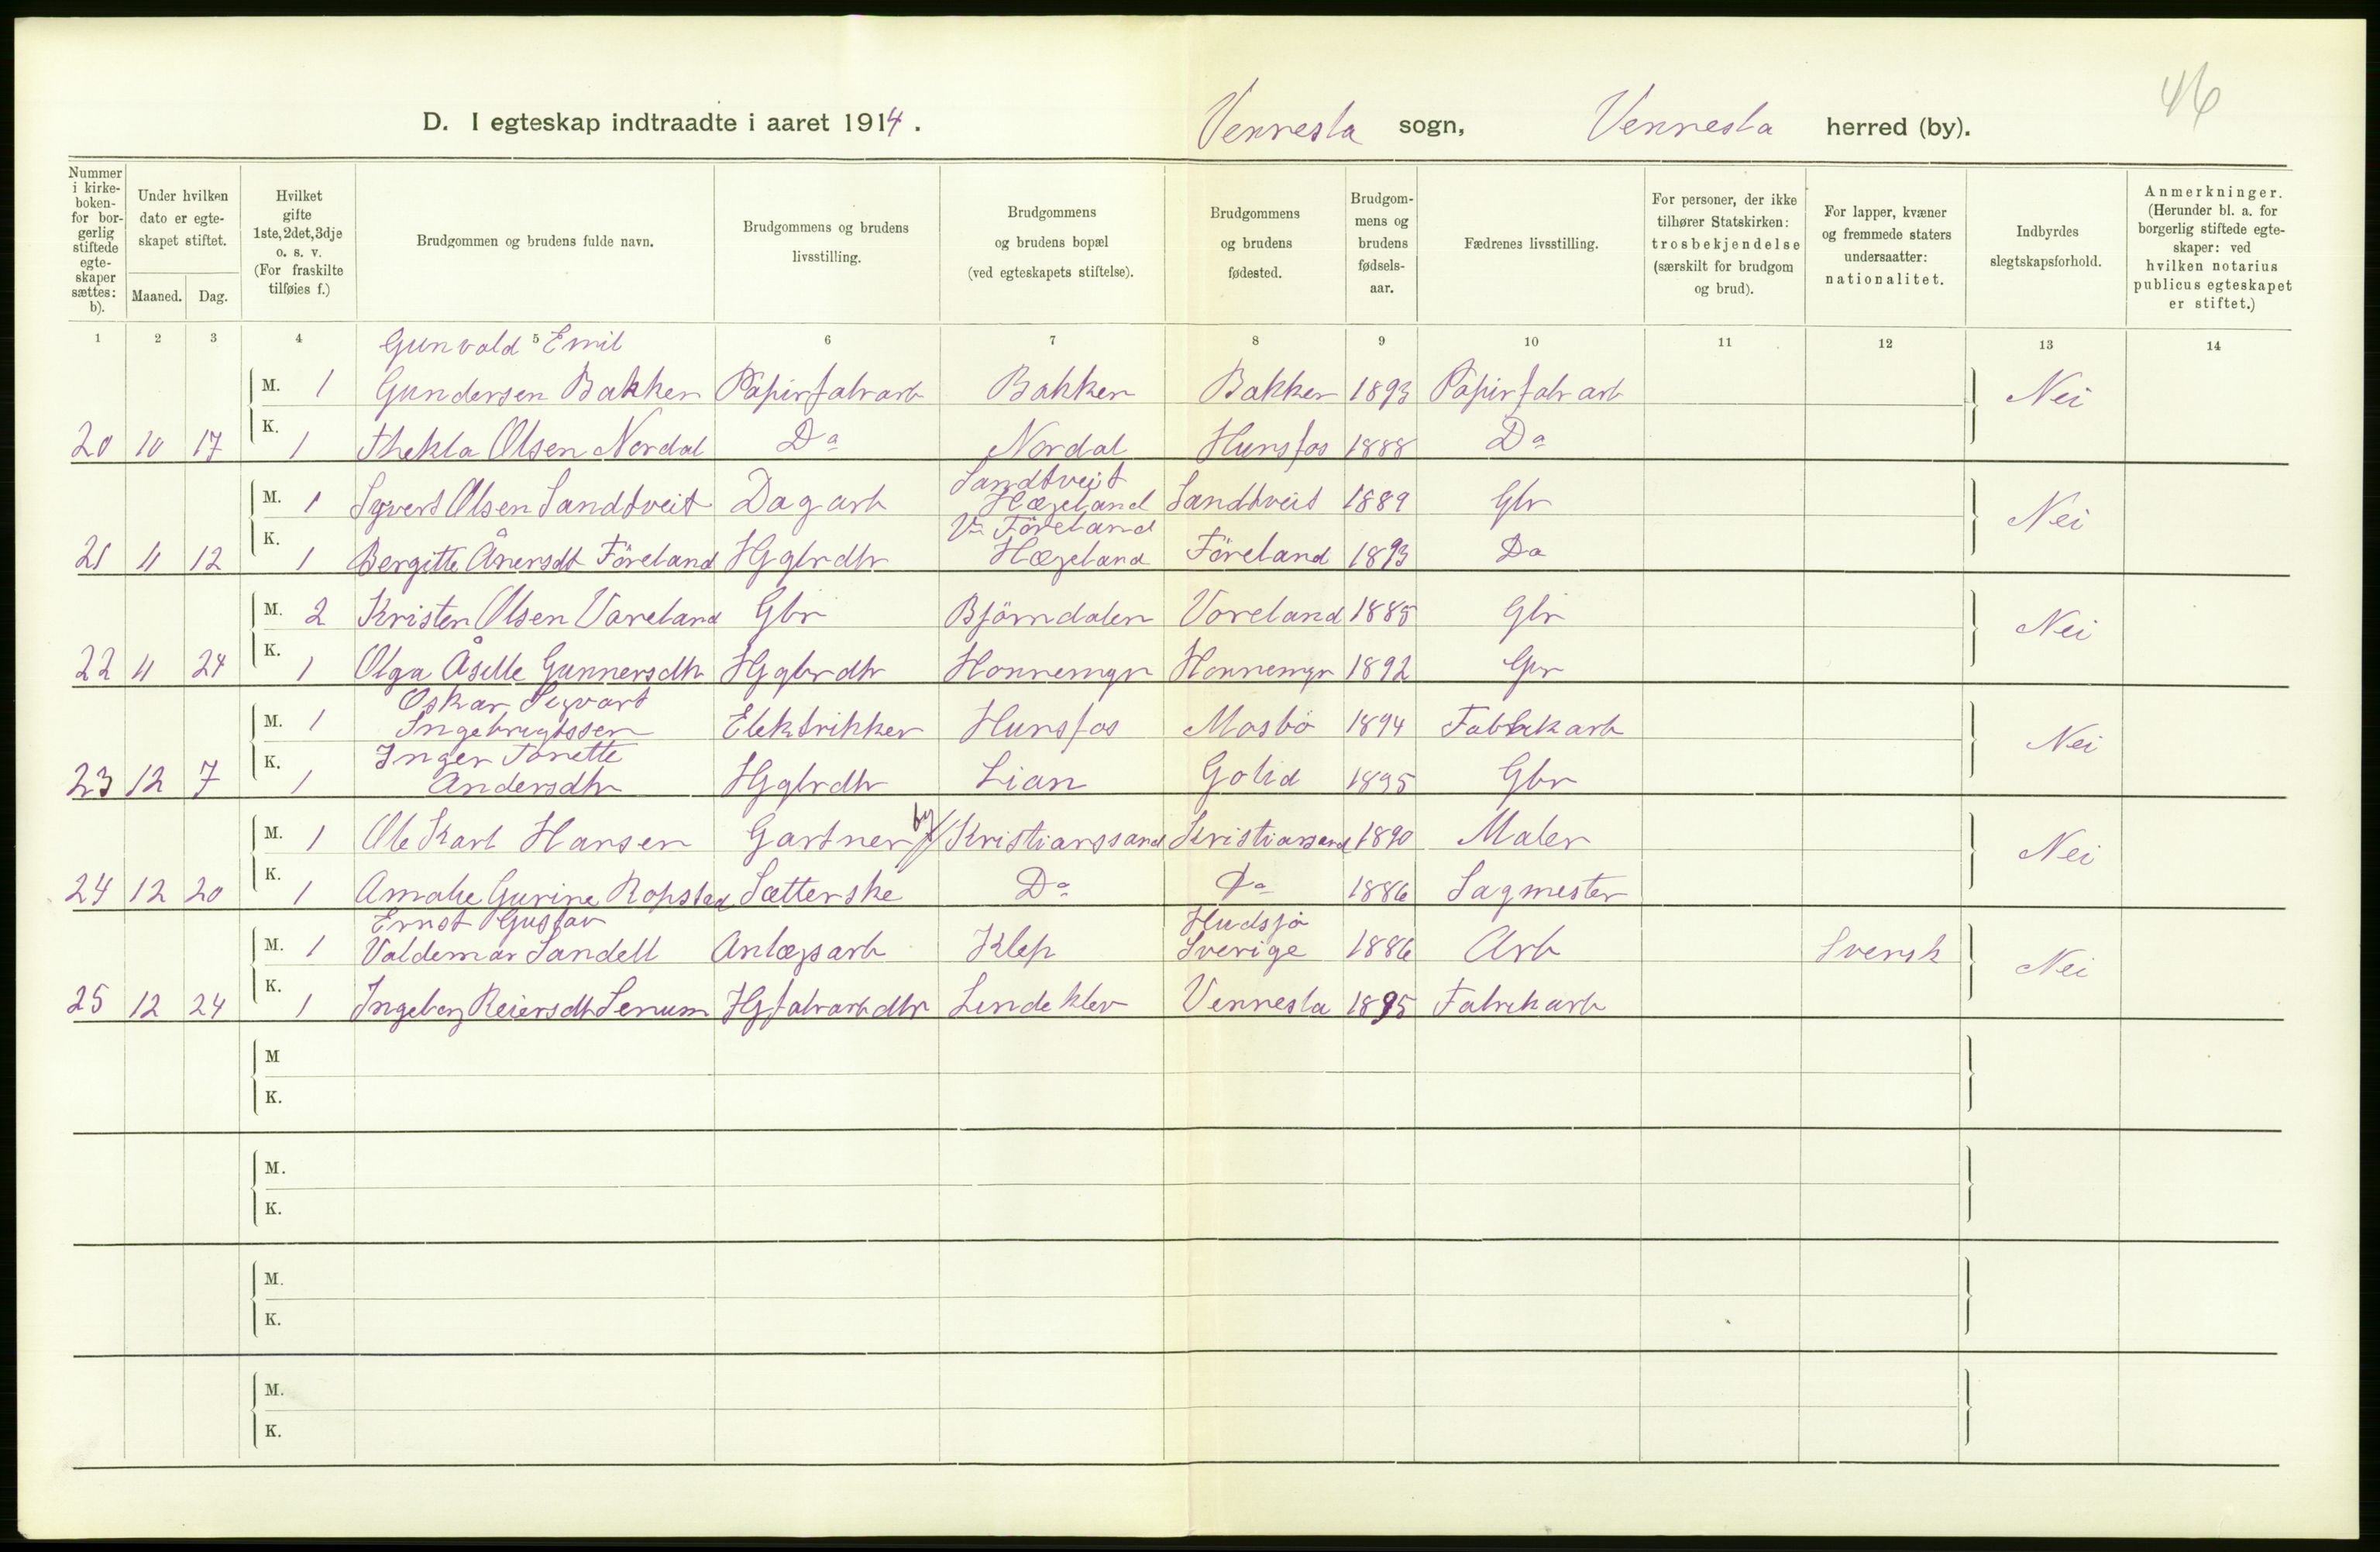 46
D. I egteskap indtraadte i aaret 1914. Vennesla sogn, Vennesla herred (by).
Nummer i kirkeboken for borgerlig stiftede egteskaper sættes: b). Under hvilken dato er egteskapet stiftet. Maaned. Dag. Hvilket gifte 1ste, 2det, 3dje o. s. v. (For fraskilte tilføies f.) Brudgommen og brudens fulde navn. Brudgommens og brudens livsstilling. Brudgommens og brudens bopæl (ved egteskapets stiftelse). Brudgommens og brudens fødested. Brudgommens og brudens fødselsaar. Fædrenes livsstilling. For personer, der ikke tilhører Statskirken: trosbekjendelse (særskilt for brudgom og brud). For lapper, kvæner og fremmede staters undersaatter: nationalitet. Indbyrdes slegtskapsforhold. Anmerkninger. (Herunder bl. a. for borgerlig stiftede egteskaper: ved hvilken notarius publicus egteskapet er stiftet.)
1 2 3 4 5 6 7 8 9 10 11 12 13 14
Gunvald Emil
M. 1 Gundersen Bakken Papirfabrarb Bakken Bakken 1893 Papirfabrarb Nei
20 10 17 K. 1 Thekla Olsen Nordal Do Nordal Hunsfos 1888 Do
Sandtveit
M. 1 Syvert Olsen Sandtveit Dagarb Hægeland Sandtveit 1889 Gbr Nei
Föreland
21 11 12 K. 1 Bergitte Ånersdt Föreland Hjgbrdtr Hægeland Föreland 1893 Do
M. 2 Kristen Olsen Voreland Gbr Björndalen Voreland 1885 Gbr Nei
22 11 24 K. 1 Olga Åselle Gunnersdtr Hjgbrdtr Honnemyr Honnemyr 1892 Gbr
Oskar Sigvart
M. 1 Ingebrigtssen Elektrikker Hunsfos Mosbö 1894 Fabrikarb Nei
Inger Tonette
23 12 7 K. 1 Andersdtr Hjgbrdtr Lian Golid 1895 Gbr
M. 1 Ole Karl Hansen Gartner by Kristianssand Kristianssand 1890 Maler Nei
24 12 20 K. 1 Amalie Gurine Ropstad Sætterske Do Do 1886 Sagmester
Ernst Gustav Hudsjö
M. 1 Valdemar Sandell Anlægsarb Klep Sverige 1886 Arb Svensk Nei
25 12 24 K. 1 Ingeborg Reiersdtr Senum Hjfabrarbdtr Lindeklev Vennesla 1895 Fabrikarb
M
K.
M.
K.
M.
K.
M.
K.